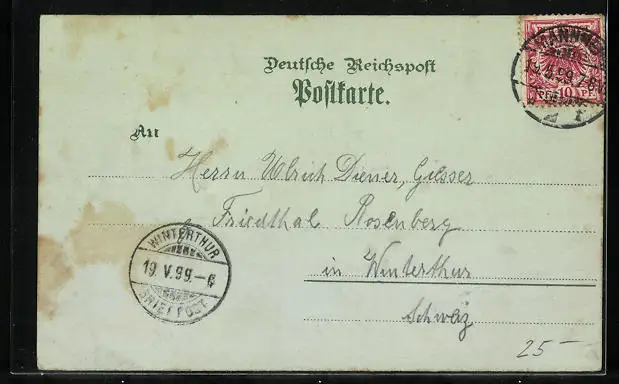 Deutsche Reichspost
Postkarte.
MANNHE
10 PF
An
Herrn Ulrich Diener, Giesser
Friedthal Rosenberg
in Winterthur
Schweiz
WINTERTHUR
19. V. 99.
BRIEFPOST
25-